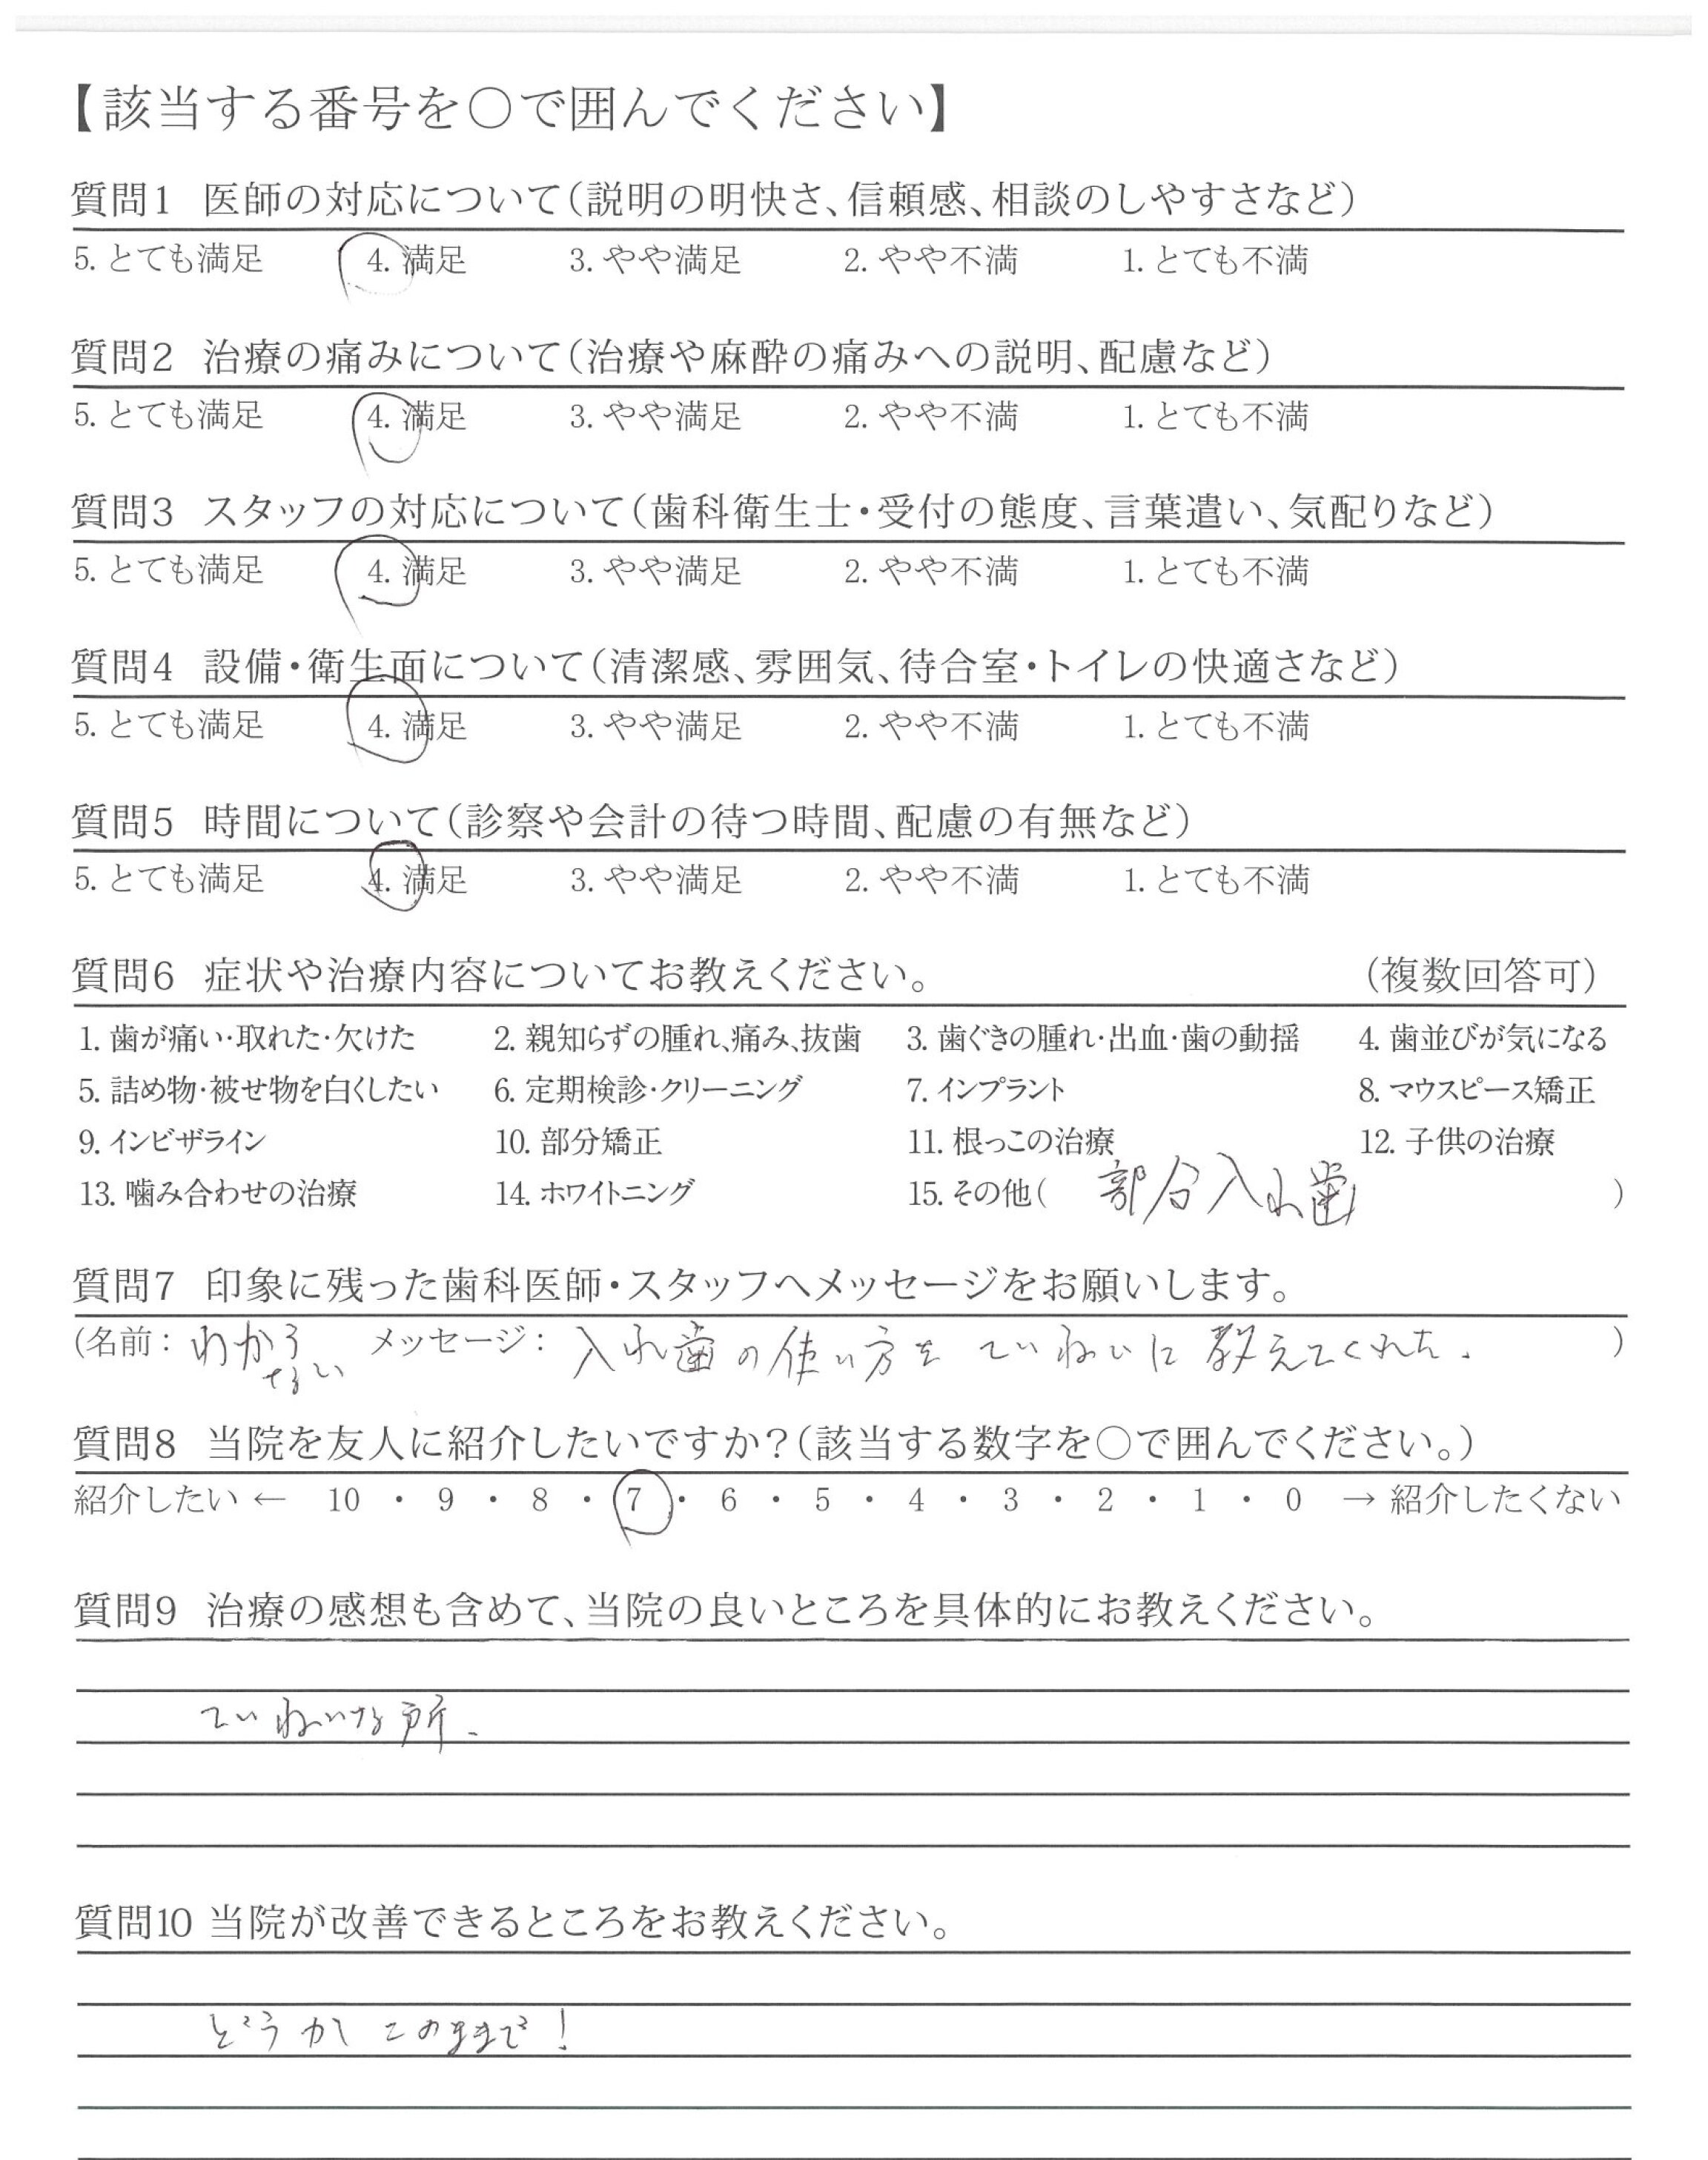 【該当する番号を○で囲んでください】
質問1 医師の対応について(説明の明快さ、信頼感、相談のしやすさなど)
5. とても満足 4. 満足 3. やや満足 2. やや不満 1. とても不満
質問2 治療の痛みについて(治療や麻酔の痛みへの説明、配慮など)
5. とても満足 4. 満足 3. やや満足 2. やや不満 1. とても不満
質問3 スタッフの対応について(歯科衛生士・受付の態度、言葉遣い、気配りなど)
5. とても満足 4. 満足 3. やや満足 2. やや不満 1. とても不満
質問4 設備・衛生面について(清潔感、雰囲気、待合室・トイレの快適さなど)
5. とても満足 4. 満足 3. やや満足 2. やや不満 1. とても不満
質問5 時間について(診察や会計の待つ時間、配慮の有無など)
5. とても満足 4. 満足 3. やや満足 2. やや不満 1. とても不満
質問6 症状や治療内容についてお教えください。 (複数回答可)
1. 歯が痛い・取れた・欠けた 2. 親知らずの腫れ、痛み、抜歯 3. 歯ぐきの腫れ・出血・歯の動揺 4. 歯並びが気になる
5. 詰め物・被せ物を白くしたい 6. 定期検診・クリーニング 7. インプラント 8. マウスピース矯正
9. インビザライン 10. 部分矯正 11. 根っこの治療 12. 子供の治療
13. 噛み合わせの治療 14. ホワイトニング 15. その他( 部分入れ歯 )
質問7 印象に残った歯科医師・スタッフへメッセージをお願いします。
(名前: わからない メッセージ: 入れ歯の使い方をていねいに教えてくれた. )
質問8 当院を友人に紹介したいですか?(該当する数字を○で囲んでください。)
紹介したい ← 10 ・ 9 ・ 8 ・ 7 ・ 6 ・ 5 ・ 4 ・ 3 ・ 2 ・ 1 ・ 0 → 紹介したくない
質問9 治療の感想も含めて、当院の良いところを具体的にお教えください。
ていねいな所.
質問10 当院が改善できるところをお教えください。
どうか このままで!